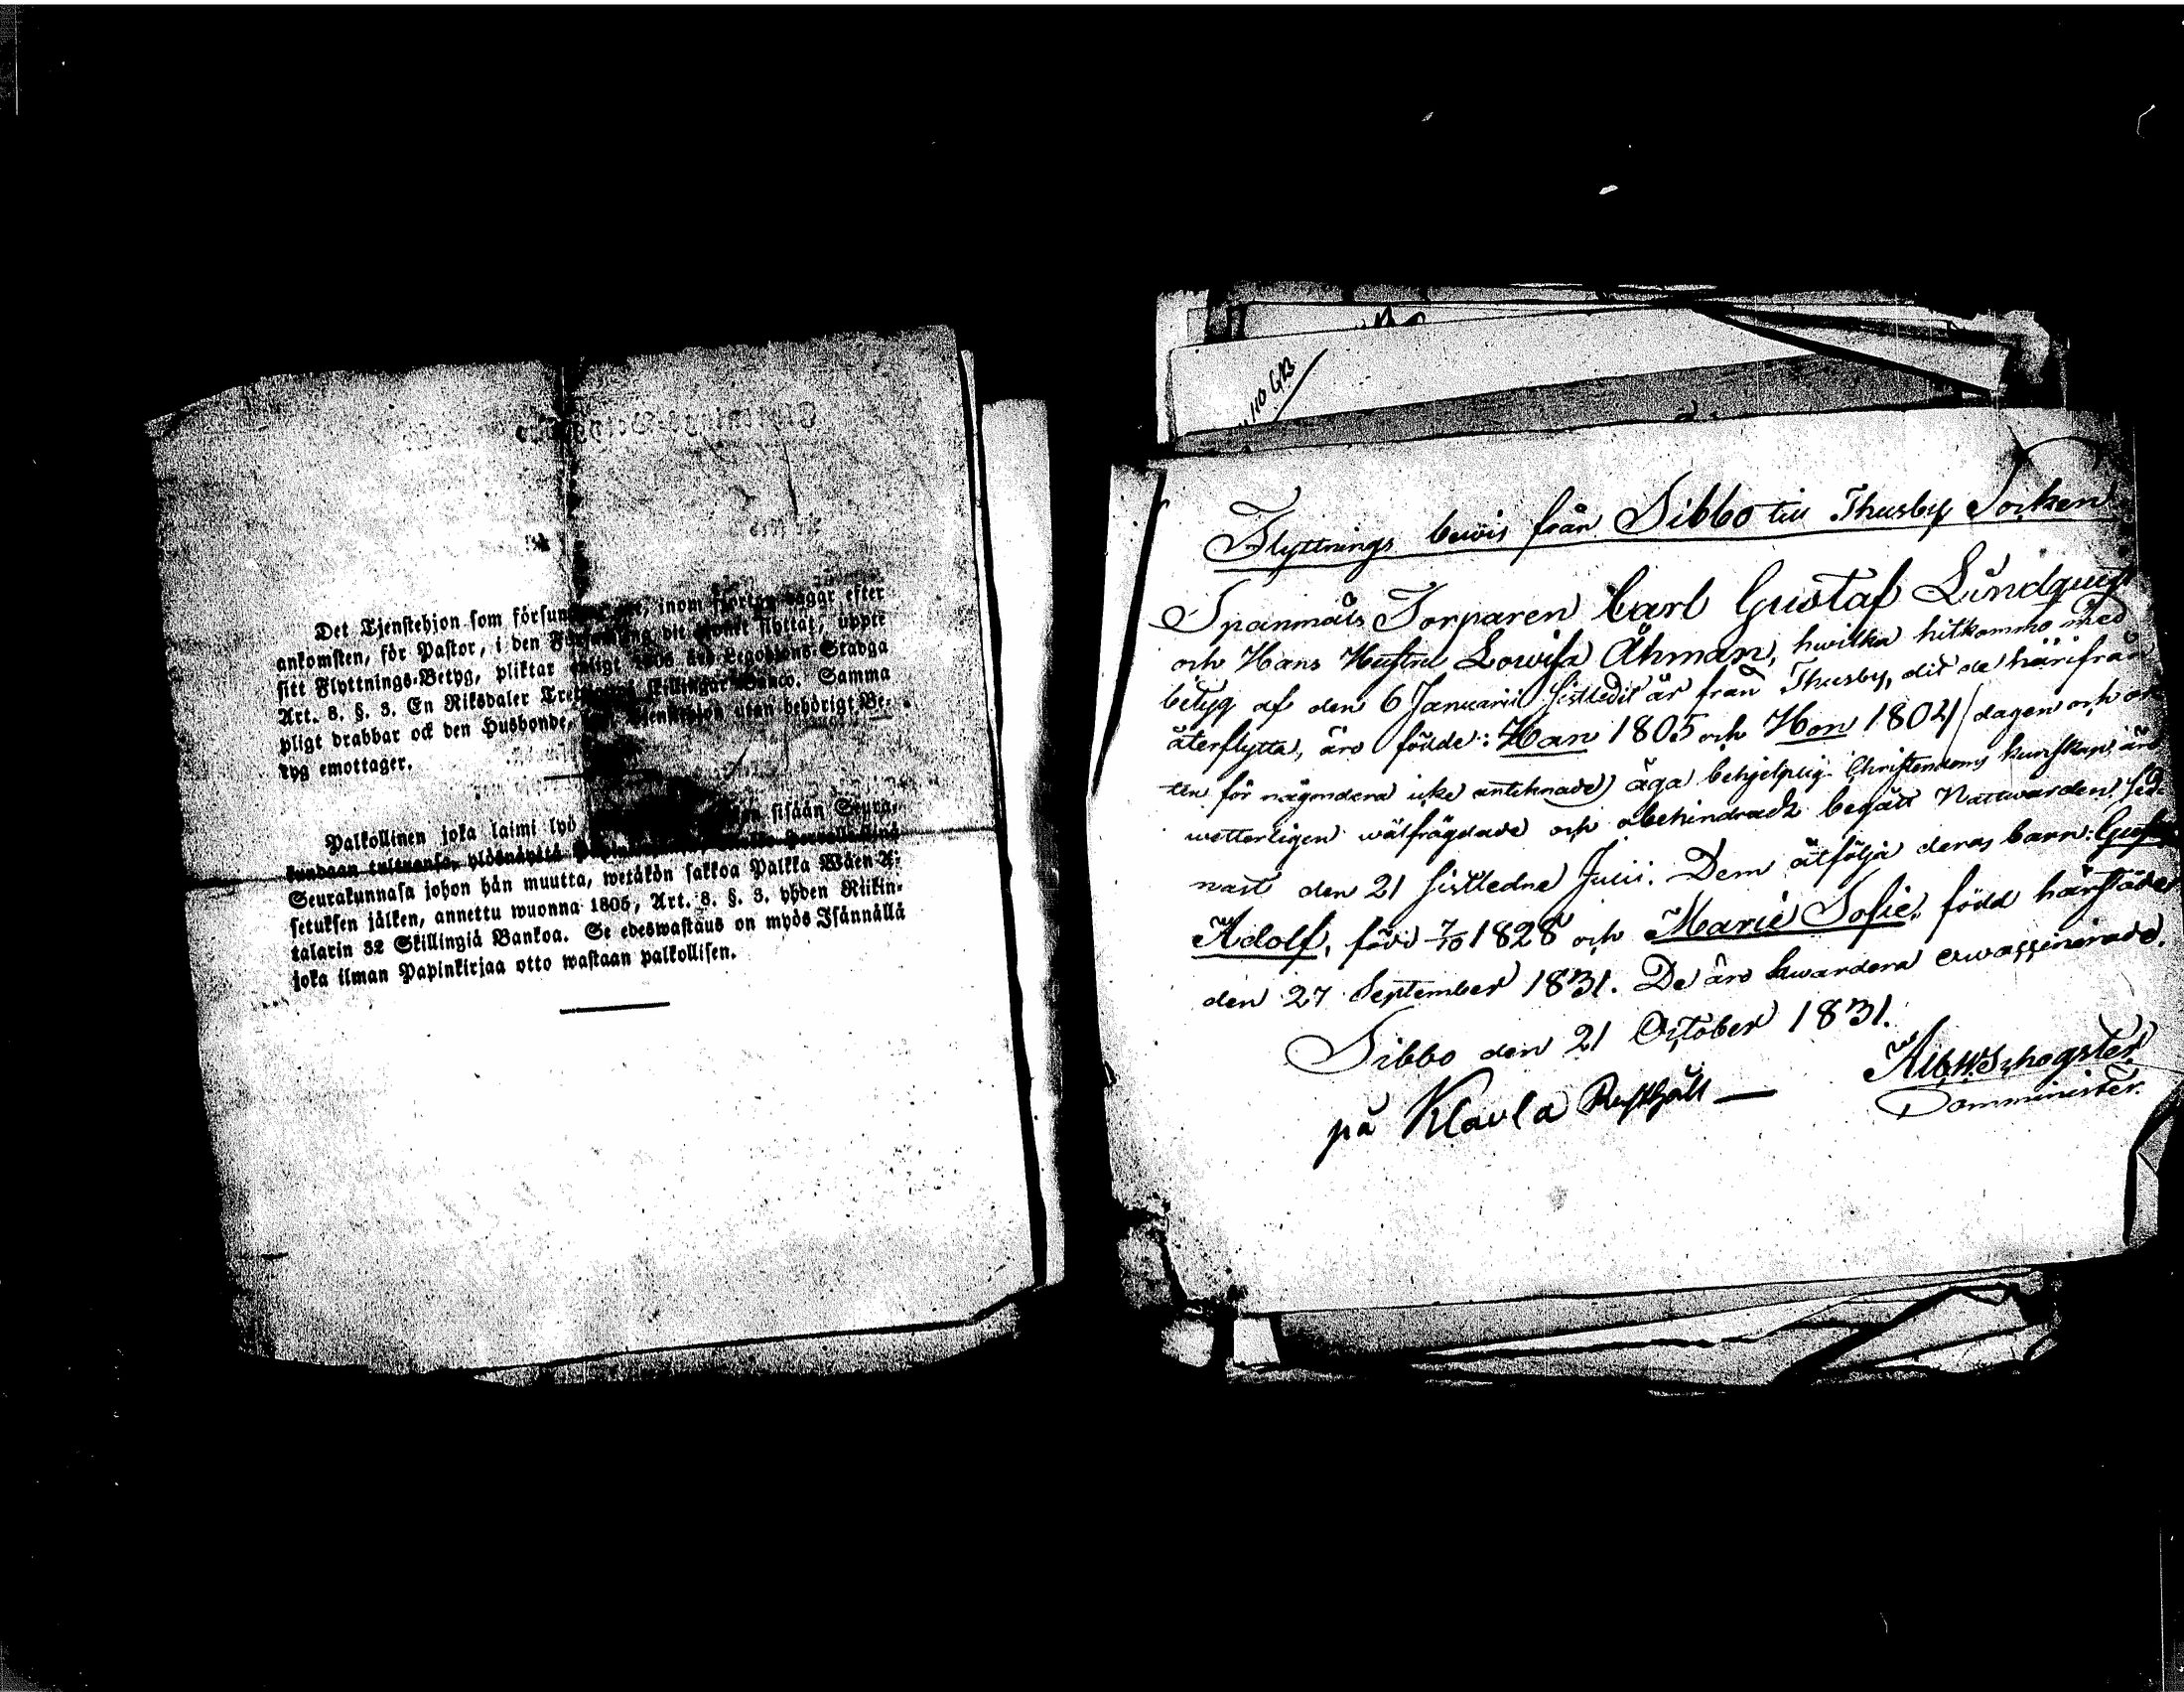 Det Tjenstehjon som försum inom fjorton dagar efter
ankomsten, för Pastor, i den Församling dit hjonet flyttat, uppte
sitt Flyttnings-Betyg, pliktar enligt 1805 års Legohjons-Stadga
Art. 8. §. 3. En Riksdaler Tret Skillingar Banco. Samma
pligt drabbar ock den Husbonde, Tjenstehjon utan behörigt Be-
tyg emottager.
Palkollinen joka laimi lyö sisään Seura-
kundaan tultuansa, ylösnäyttä
Seurakunnasa johon hän muutta, wetäkön sakkoa Palkka Wäen A-
setuksen jälken, annettu wuonna 1805, Art. 8. §. 3. yhden Riikin-
talarin 32 Skillingiä Bankoa. Se edeswastaus on myös Isännällä
joka ilman Papinkirjaa otto wastaan palkollisen.
110 GKB
Flyttnings bewis från Sibbo till Thusby Socken
Spanmåls Torparen Carl Gustaf Lundquist
och Hans Hustru Lowisa Åhman, hwilka hitkommo med
betyg af den 6 Januarii sistledit år från Thusby, dit de härifrån
återflytta, äro födde: Han 1805 och Hon 1804 (dagen och or
ten för någondera icke antecknade) äga behjelplig Christendoms kunskap, äro
wetterligen wälfrägdade och obehindradt begått Nattwarden sed-
nast den 21 sistledne Junii. Dem åtfölja deras barn: Gustaf
Adolf, född 7/10 1828 och Maria Sofie, född härstädes
den 27 September 1831. De äro hwardera owaccinerade.
Sibbo den 21 October 1831.
på Klavla Rusthåll —
Comminister.